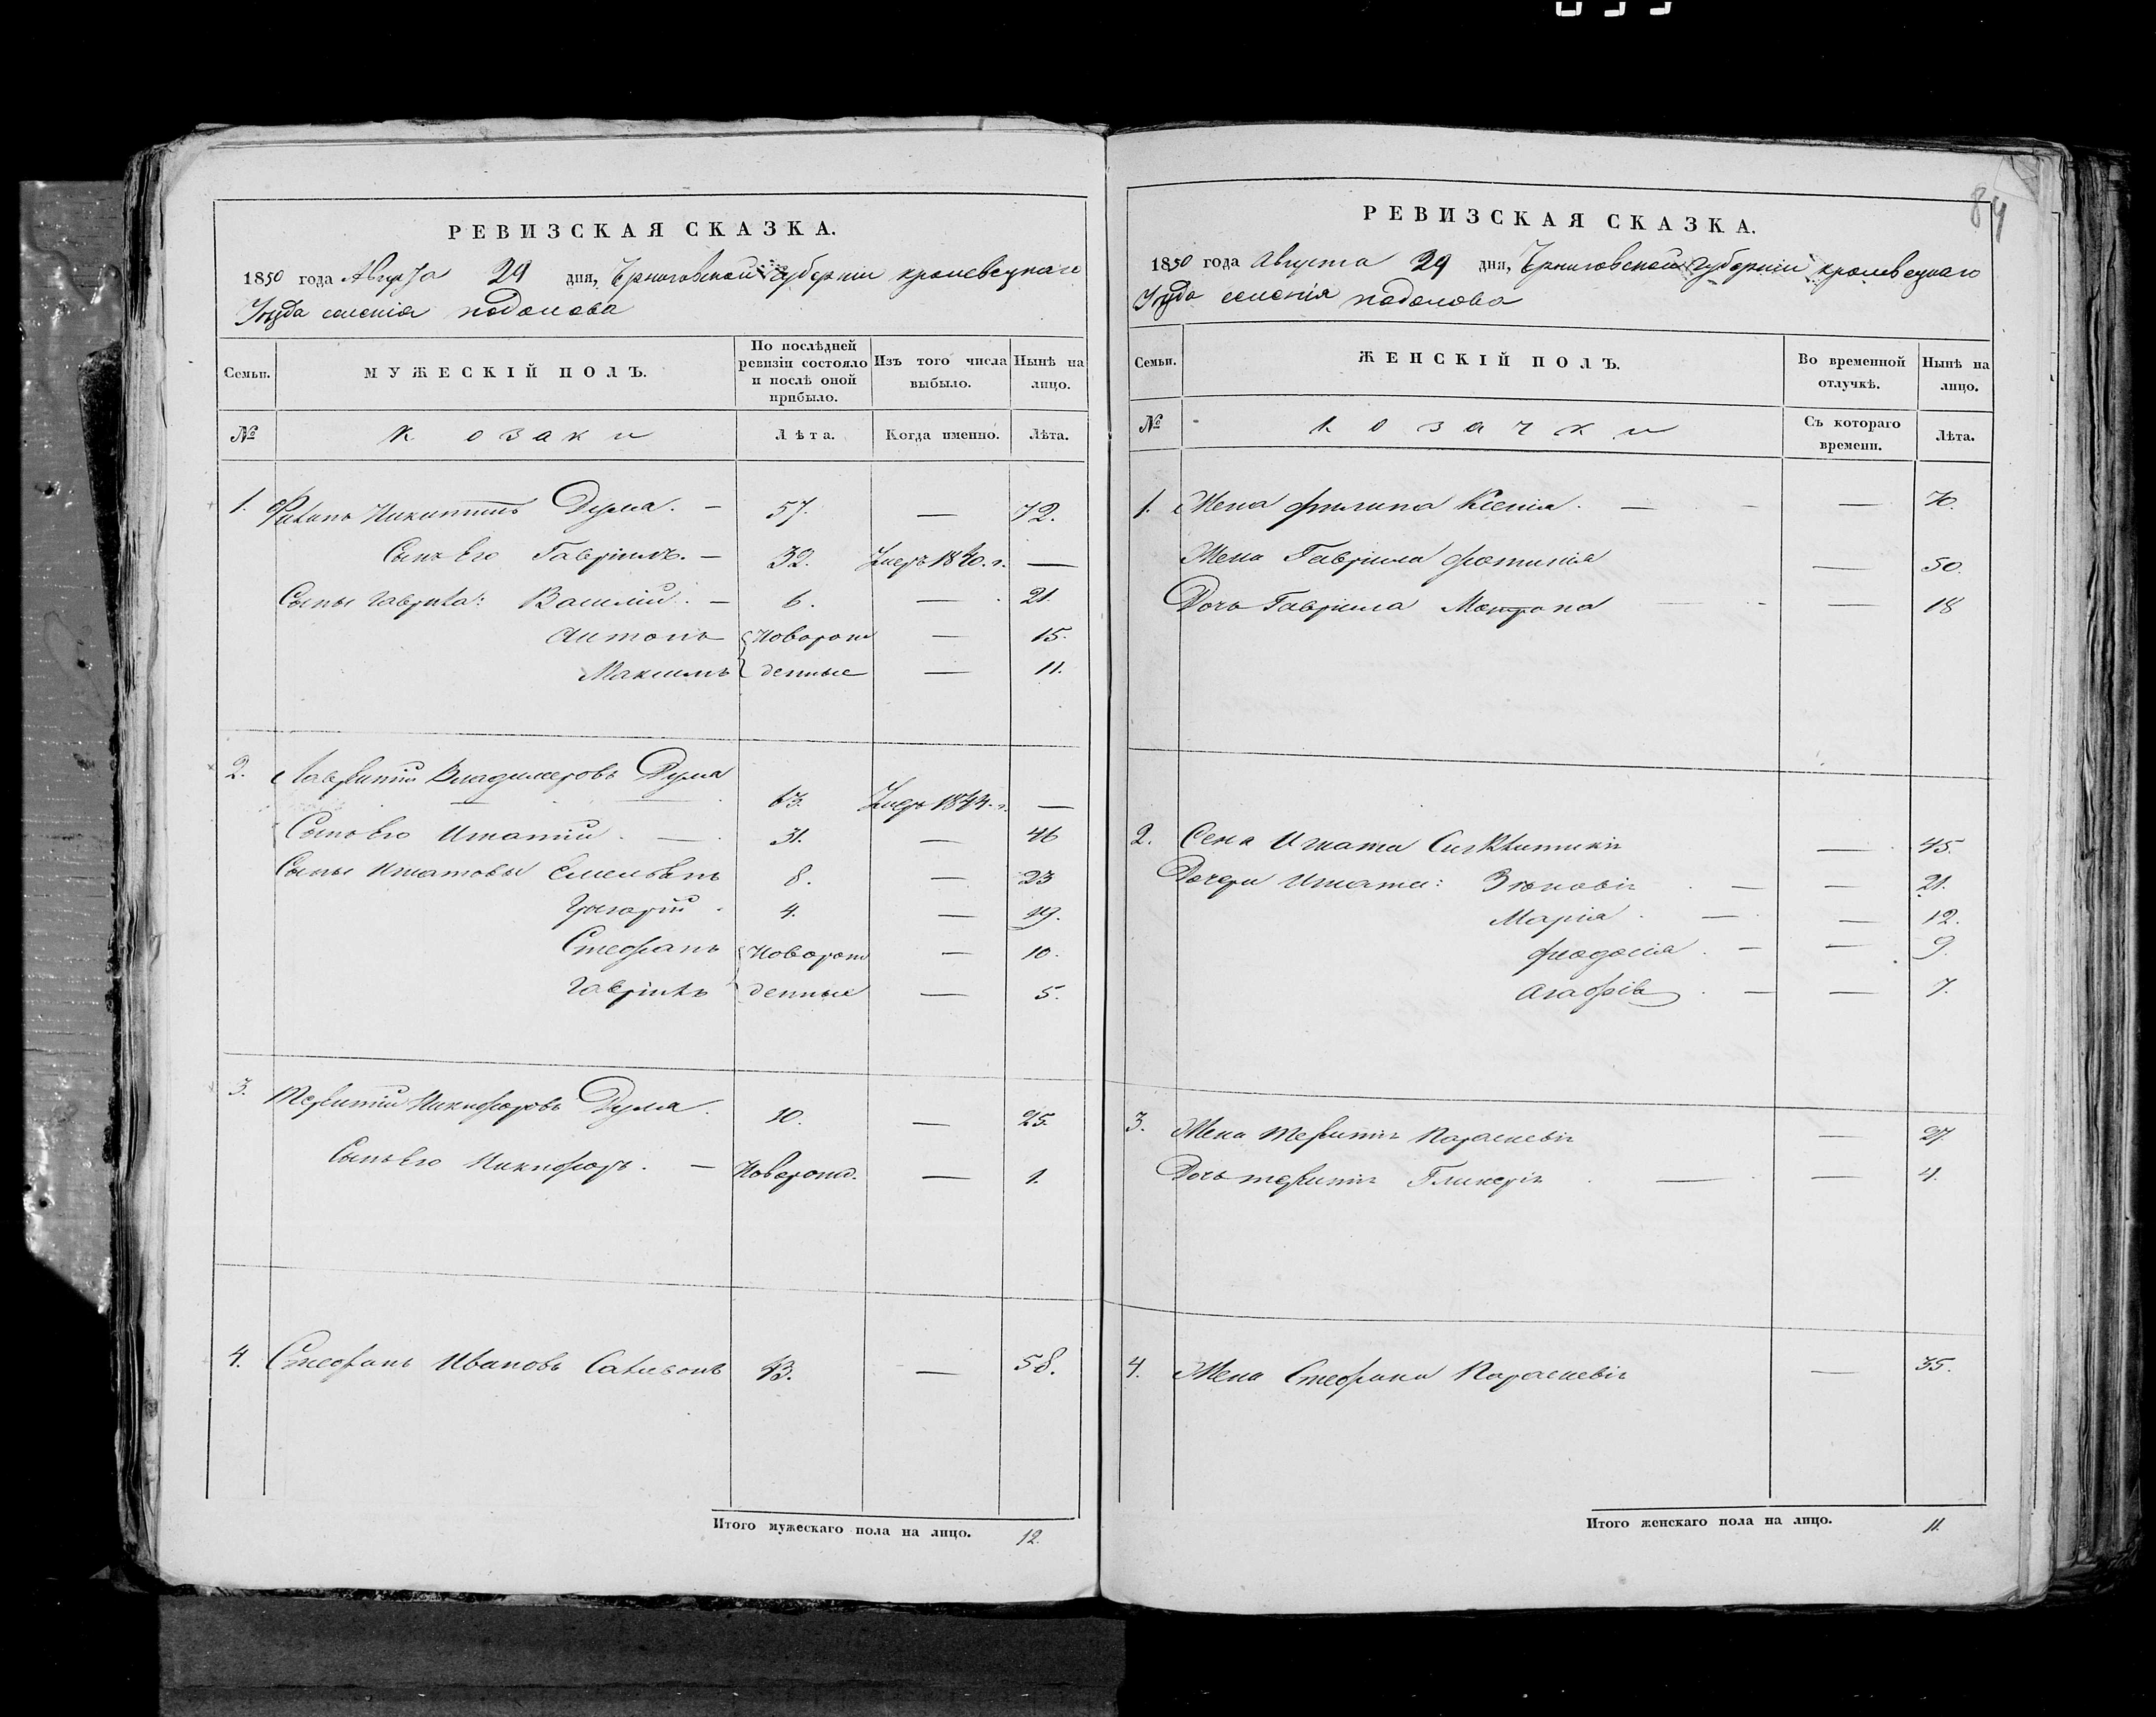 РЕВИЗСКАЯ СКАЗКА.
1850 года Августа 29 дня, Черниговской губерніи кролевецкаго
Уезда селенія подолова
Семьи. МУЖЕСКІЙ ПОЛЪ. По послѣдней ревизіи состояло и послѣ оной прибыло. Изъ того числа выбыло. Нынѣ на лицо.
№ козаки Лѣта. Когда именно. Лѣта.
1. Филипъ Никитинъ Дума. — 57. — 72.
Сынъ Его Гавріилъ. — 32. Умеръ 1840. г. —
Сыны Гаврила: Василій. — 6. — 21.
Антонъ Новорож — 15.
Максимъ денные — 11.
2. Лаврентій Владимеровъ Дума 63. Умеръ 1844. г. —
Сынъ Его Игнатій. — 31. — 46
Сыны Игнатовы Емельянъ 8. — 23
Григорій. 4. — 19.
Стефанъ Новорож — 10.
Гавріилъ денные — 5.
3. Терентій Никифоровъ Дума. 10. — 25.
Сынъ Его Никифоръ. — Новорож. — 1.
4. Стефанъ Ивановъ 43. — 58.
Итого мужескаго пола на лицо. 12.
84
РЕВИЗСКАЯ СКАЗКА.
1850 года августа 29 дня, Черниговской губерніи кролевецкаго
Уезда селенія подолова
Семьи. ЖЕНСКІЙ ПОЛЪ. Во временной отлучкѣ. Нынѣ на лицо.
№ козачки Съ котораго времени. Лѣта.
1. Жена филипа Ксенія. — — 70.
Жена Гаврила фотинія — 50.
Дочь Гаврила Матрона — 18
2. Жена Игната — 45.
Дочери Игната: Зѣновія — — 21.
Марія. — — 12.
феодосія. — — 9.
Агафія. — — 7.
3. Жена терентія Параскевія — 27.
Дочь терентія Гликерія. — — 4.
4. Жена Стефана Параскевія — 35.
Итого женскаго пола на лицо. 11.